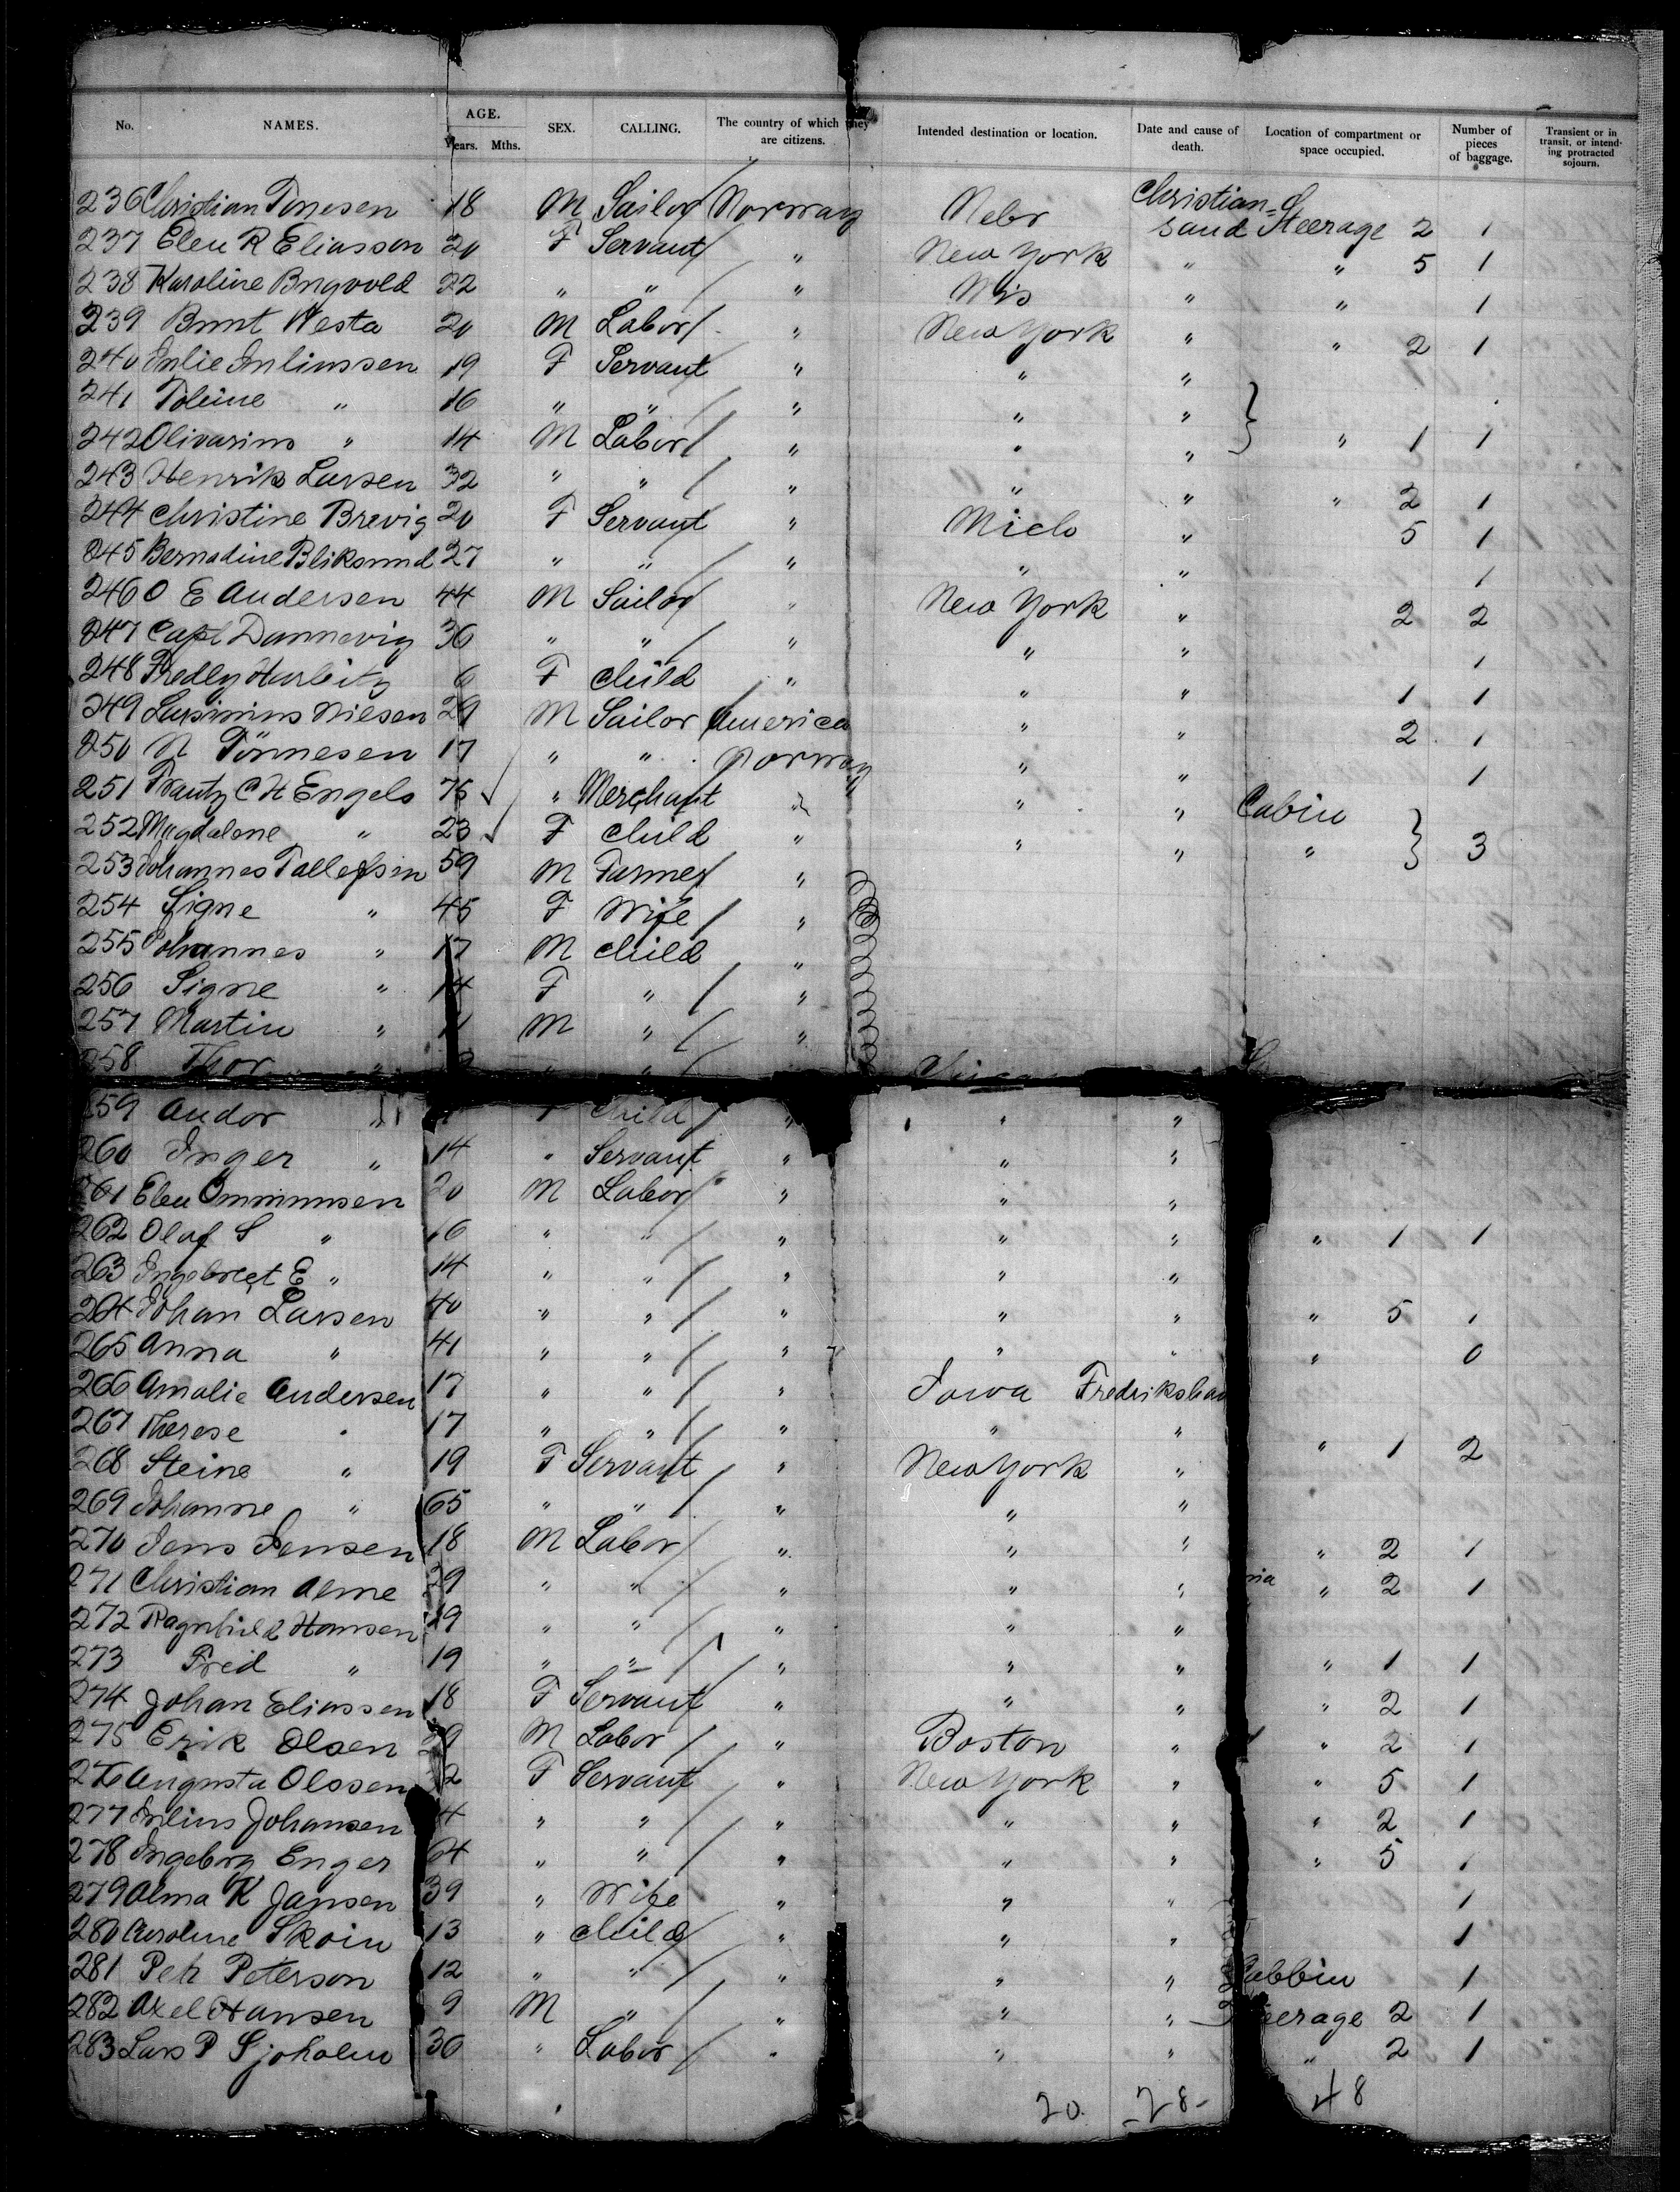 No. NAMES. AGE. Years. Mths. SEX. CALLING. The country of which they are citizens. Intended destination or location. Date and cause of death. Location of compartment or space occupied. Number of pieces of baggage. Transient or in transit, or intending protracted sojourn.
236 Christian Tonesen 18 M Sailor Norway Nebr Christian-sand Steerage 2 1
237 Elen R Eliasson 20 F Servant " New York " " 5 1
238 Karoline Bngvold 22 " " " Wis " " 1
239 Brunt Westa 20 M Labor " New York " " 2 1
240 Julie Juliussen 19 F Servant " " "
241 Toleine " 16 " " " " "
242 Olivarins " 14 M Labor " " " " 1 1
243 Henrik Larsen 32 " " " " " " 2 1
244 Christine Brevig 20 F Servant " Mich " 5 1
245 Bernadine Bliksund 27 " " " " " 1
246 O E Andersen 44 M Sailor " New York " 2 2
247 Capt Dannevig 36 " " " " " 1
248 6 F Child " " " 1 1
249 Nilsen 29 M Sailor America " " 2 1
250 N Tönnesen 17 " " Norway " " 1
251 Frautz C H Engels 75 " Merchant " " " Cabin
252 Magdalene " 23 F Child " " " " 3
253 Johannes Tallefsin 59 M Farmer "
254 Signe " 45 F Wife "
255 Johannes " 17 M Child "
256 Signe " 14 F " "
257 Martin " 11 M " "
258 Thor " " " "
259 Andor " Child " " "
260 Inger " 14 " Servant " " "
261 Elen Ommunsen 20 M Labor " " "
262 Olaf S " 16 " " " " " " 1 1
263 Ingebreet E " 14 " " " " "
264 Johan Larsen 40 " " " " " " 5 1
265 Anna " 41 " " " " " " 0
266 Amalie Andersen 17 " " " Iowa Frederikshav
267 Therese " 17 " " " " " " 1 2
268 Steine " 19 F Servant " New York "
269 Johanne " 65 " " " " "
270 Jens Jensen 18 M Labor " " " " 2 1
271 Christian Aerne 29 " " " " " " 2 1
272 Ragnhild Hansen 19 " " " " "
273 Fred " 19 " " " " " " 1 1
274 Johan Eliassen 18 F Servant " " " " 2 1
275 Erik Olsen 29 M Labor " Boston " " 2 1
276 Augusta Olssen 2 F Servant " New York " " 5 1
277 Julius Johansen 4 " " " " " " 2 1
278 Ingeborg Enger 64 " " " " " " 5 1
279 Alma K Jansen 39 " Wife " " " 1
280 Caroline Skoin 13 " Child " " " 1
281 Peh Peterson 12 " " " " " Cabbin 1
282 Axel Hansen 9 M " " " " Steerage 2 1
283 Lars P Sjoholm 30 " Labor " " " " 2 1
20 -28- 48